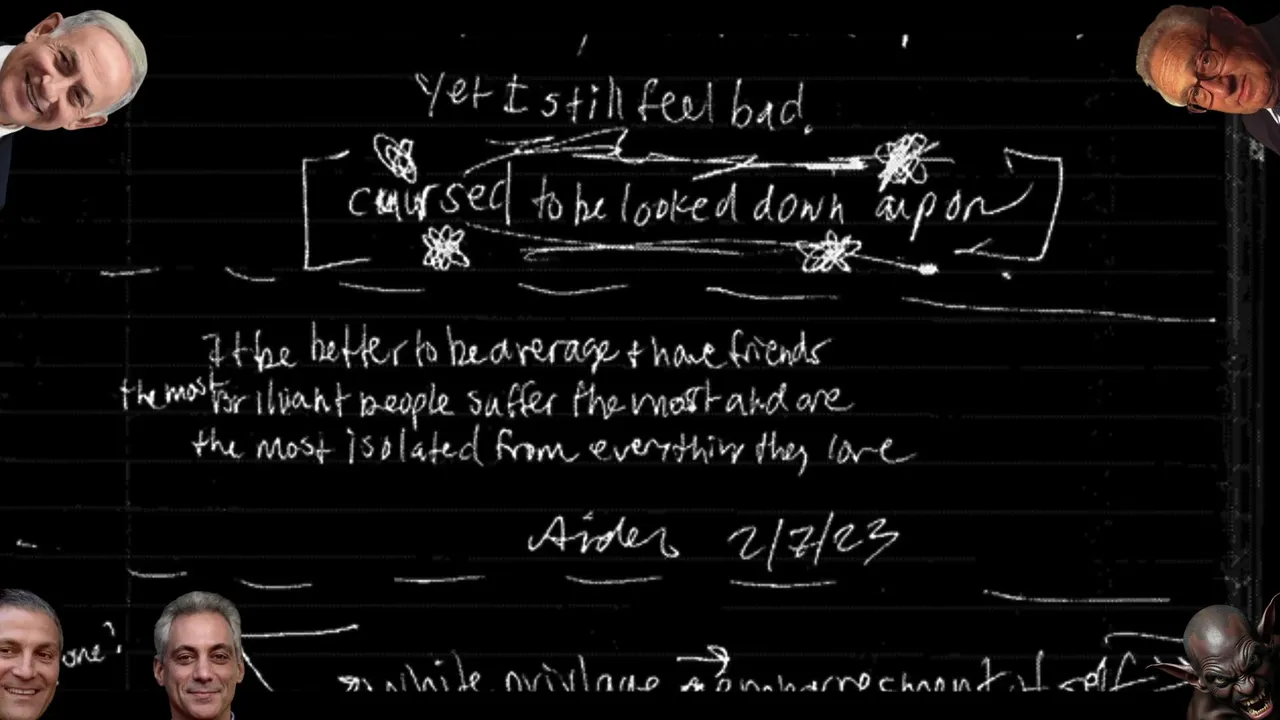 Yet I still feel bad.
cursed to be looked down upon
It be better to be average + have friends
the most briliant people suffer the most and are
the most isolated from everything they love
Aiden 2/7/23
one?
white privlage → embarrachment of self